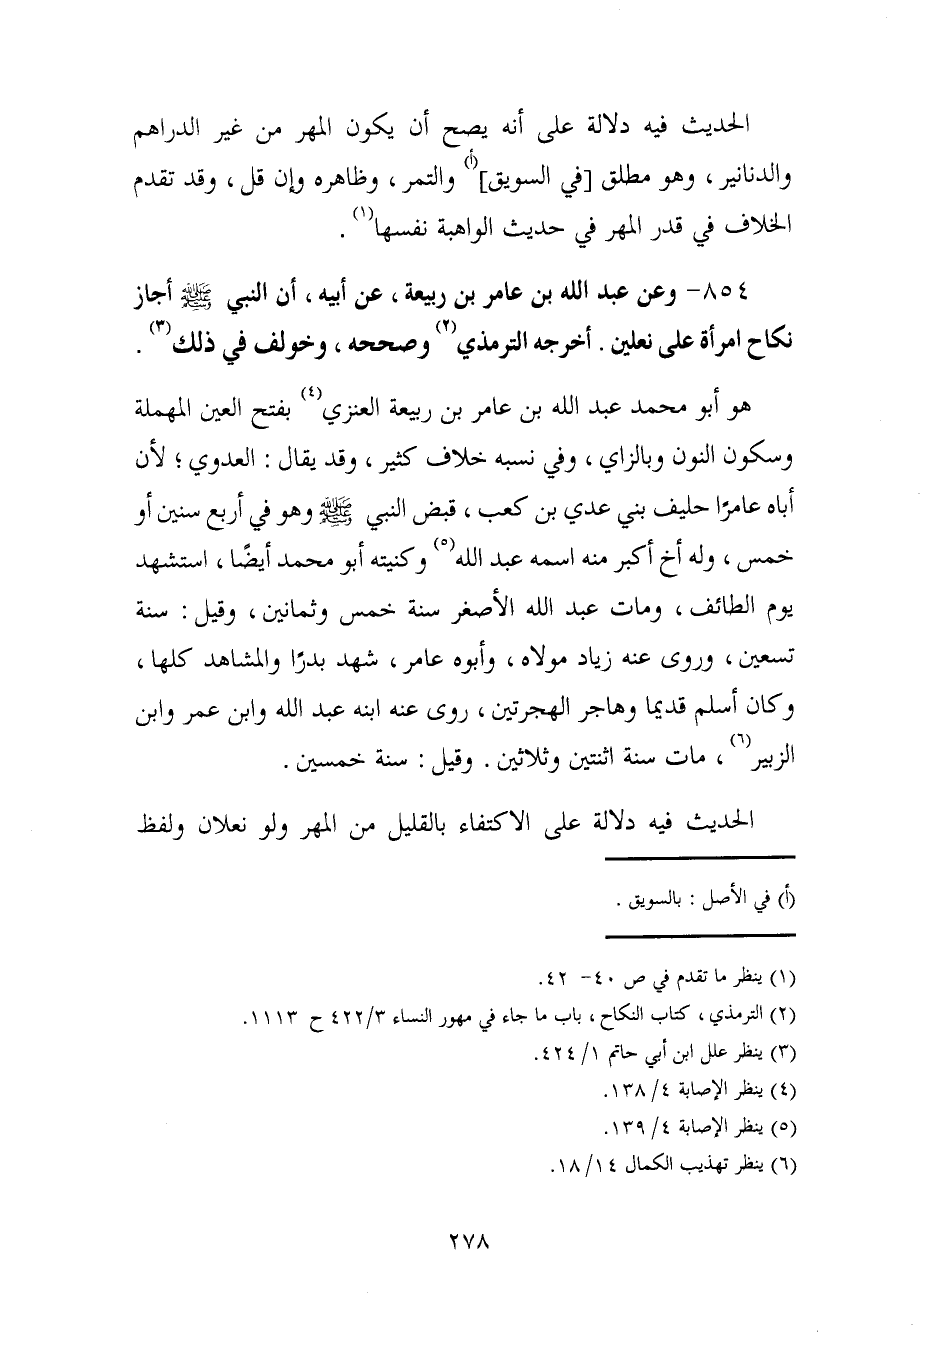 الحديث فيه دلالة على أنه يصح أن يكون المهر من غير الدراهم
والدنانير ، وهو مطلق [في السويق](أ) والتمر ، وظاهره وإن قل ، وقد تقدم
الخلاف في قدر المهر في حديث الواهبة نفسها(١) .
٨٥٤- وعن عبد الله بن عامر بن ربيعة ، عن أبيه ، أن النبي ﷺ أجاز
نكاح امرأة على نعلين . أخرجه الترمذي(٢) وصححه ، وخولف في ذلك(٣) .
هو أبو محمد عبد الله بن عامر بن ربيعة العنزي(٤) بفتح العين المهملة
وسكون النون وبالزاي ، وفي نسبه خلاف كثير ، وقد يقال : العدوي ؛ لأن
أباه عامرًا حليف بني عدي بن كعب ، قبض النبي ﷺ وهو في أربع سنين أو
خمس ، وله أخ أكبر منه اسمه عبد الله(٥) وكنيته أبو محمد أيضًا ، استشهد
يوم الطائف ، ومات عبد الله الأصغر سنة خمس وثمانين ، وقيل : سنة
تسعين ، وروى عنه زياد مولاه ، وأبوه عامر ، شهد بدرًا والمشاهد كلها ،
وكان أسلم قديما وهاجر الهجرتين ، روى عنه ابنه عبد الله وابن عمر وابن
الزبير(٦) ، مات سنة اثنتين وثلاثين . وقيل : سنة خمسين .
الحديث فيه دلالة على الاكتفاء بالقليل من المهر ولو نعلان ولفظ
(أ) في الأصل : بالسويق .
(١) ينظر ما تقدم في ص ٤٠- ٤٢.
(٢) الترمذي ، كتاب النكاح ، باب ما جاء في مهور النساء ٤٢٢/٣ ح ١١١٣.
(٣) ينظر علل ابن أبي حاتم ١/ ٤٢٤.
(٤) ينظر الإصابة ٤/ ١٣٨.
(٥) ينظر الإصابة ٤/ ١٣٩.
(٦) ينظر تهذيب الكمال ١٨/١٤.
٢٧٨